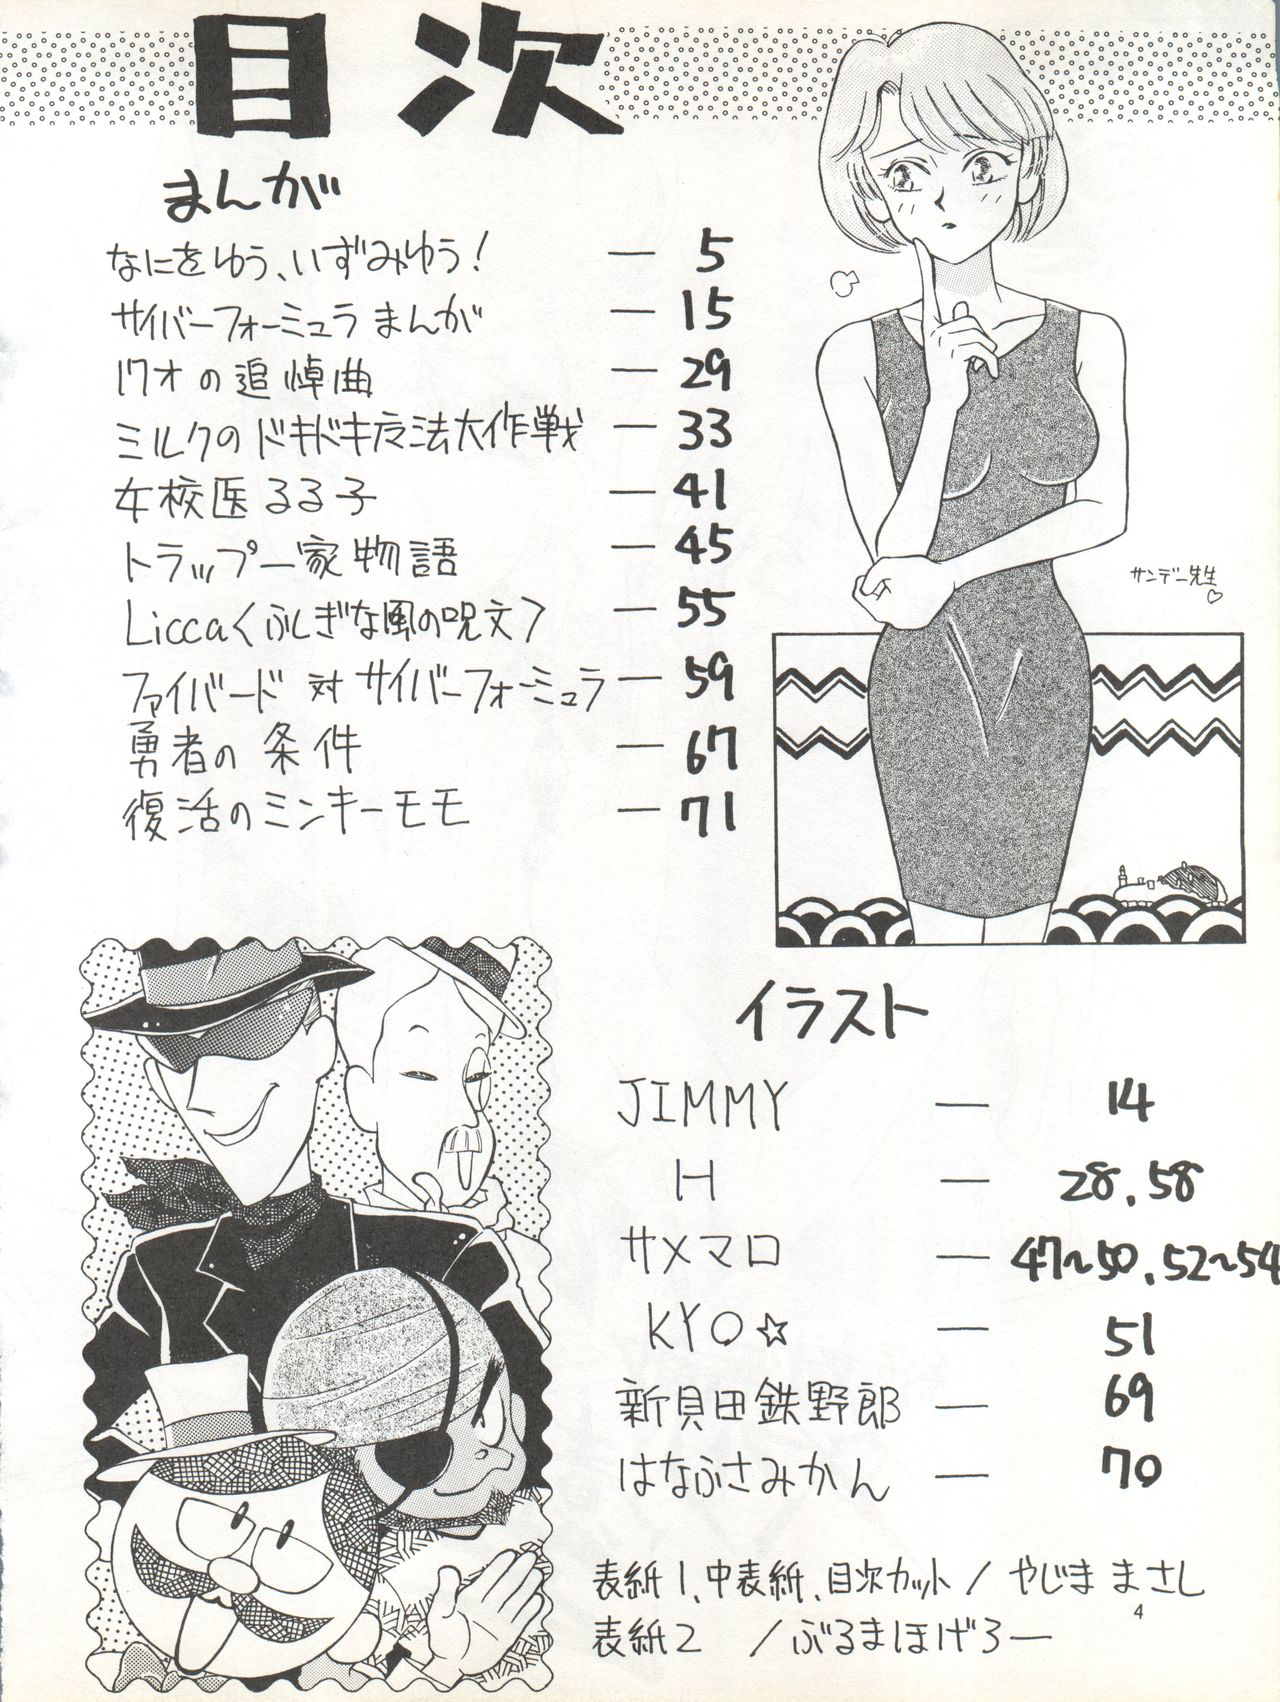 目次
まんが
なにをゆう、いずみゆう! — 5
サイバーフォーミュラまんが — 15
ワオの追悼曲 — 29
ミルクのドキドキ魔法大作戦 — 33
女校医るる子 — 41
トラップ一家物語 — 45
Licca〈ふしぎな風の呪文〉 — 55
ファイバード 対 サイバーフォーミュラ — 59
勇者の条件 — 67
復活のミンキーモモ — 71
サンデー先生♡
イラスト
JIMMY — 14
H — 28.58
サメマロ — 47〜50.52〜54
KYO☆ — 51
新貝田鉄野郎 — 69
はなふさみかん — 70
表紙1、中表紙、目次カット/やじままさし
表紙2 /ぶるまほげろー
4